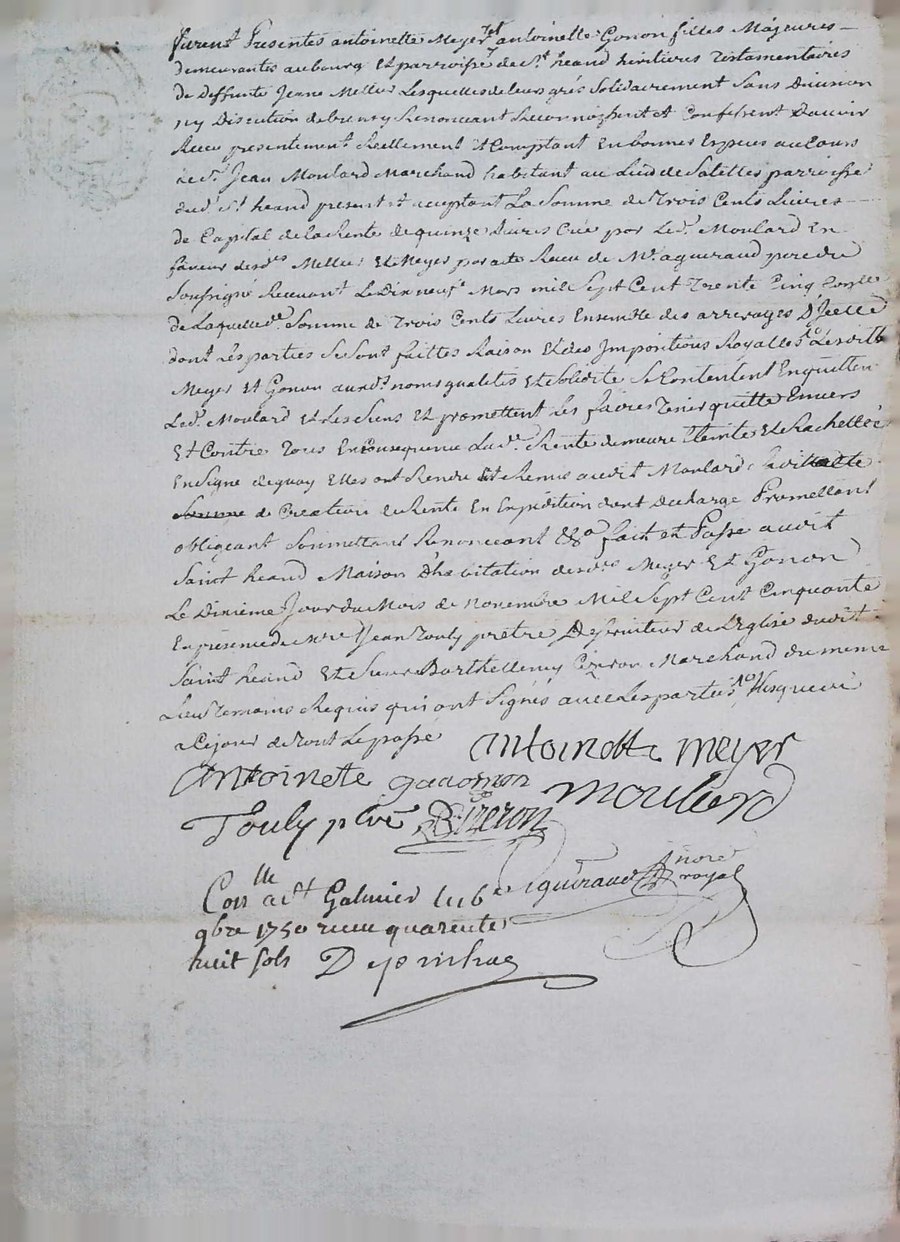 furent Presentes antoinette Meyer et antoinette Gonon filles Majeures
demeurantes au bourg Et parroisse de St. heand héritieres Testamentaires
de Deffunte Jeane Mellier Lesquelles de leurs grés Solidairement Sans Division
ny Discution de biens y Renonceant Reconnoissent et Confessent Davoir
Receu presentement Reellement & Comptant En bonnes Especes au Cours
de Sr. Jean Moulard Marchand habitant au Lieu de Satelles parroisse
dud. St. heand present et acceptant La Somme de Trois Cents Livres
de Capital de la Rente de quinze Livres Créé par Led. Moulard En
faveur desd.es Mellier Et Meyer par acte Receu de Me. aguiraud pere du
Soussigné Recevant Le Dix neufe. Mars mil Sept Cent Trente Cinq
de Laquelle de. Somme de Trois Cents Livres Ensemble des arrerages D'Icelle
dont Les parties Se Sont faittes Raison Et des Impositions Royalles
Meyer Et Gonon auxd.s noms qualités Et Solidité Se Contentent En quitten
Led. Moulard Et Les Siens Et promettent Les faires Tenir quitte Envers
Et Contre Tous En Consequence Lad.e Rente demeure Eteinte Et Rachettée
En Signe de quoy Elles ont Rendu Et Remis audit Moulard
de Creation de Rente En Expédition dont decharge Promettant
obligeant Soumettant Renonceant &a. fait et Passe audit
Saint heand Maison D'habitation desd.es Meyer Et Gonon
Le Dixieme Jour du Mois de novembre Mil Sept Cent Cinquante
En présence de Jean Touly pretre Desserviteur de L'Eglise dudit
Saint heand Et Sieur Barthellemy Bizeron Marchand du meme
Lieu Temoins Requis qui ont Signés avec Les parties
a Ce jour de Tout Le passé
antoinette meyer
antoinete gaaonon
moulard
Touly ptre Bizeron
aguiraud nore royal
Con.lle a St Galmier Le 16e
9bre 1750 receu quarente
huit sols Depinhac